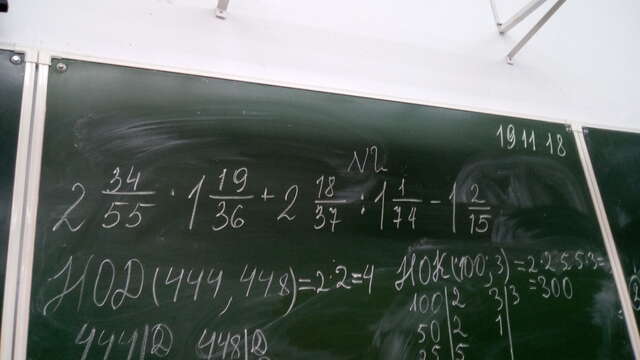 19 11 18
№2
2 34/55 · 1 19/36 + 2 18/37 : 1 1/74 - 1 2/15
НОД(444, 448)=2·2=4
НОК(100; 3)=2·2·5·5·3=
=300
444|2 448|2
100|2 3|3
50|2 1
25|5